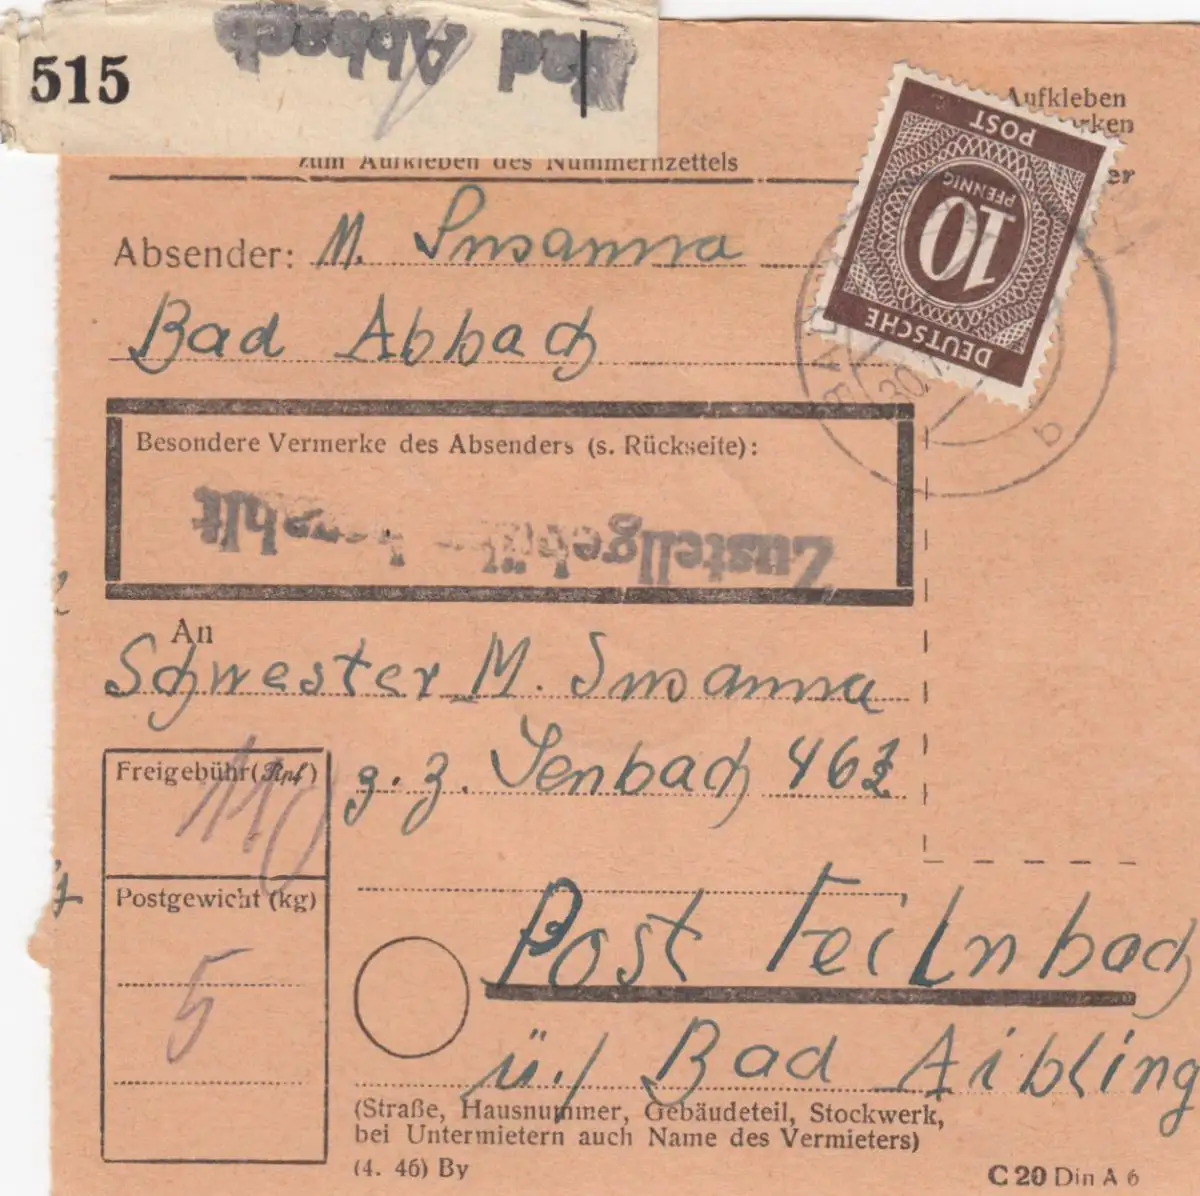 515
Bad Abbach
Aufkleben
zum Aufkleben des Nummernzettels
DEUTSCHE
10
PFENNIG
POST
Absender: M. Susanna
Bad Abbach
30.
b
Besondere Vermerke des Absenders (s. Rückseite):
Zustellgebühr bezahlt
An
Schwester M. Susanna
Freigebühr (Rpf)
110
g. z. Jenbach 46
Postgewicht (kg)
5
Post Feilnbach
ü./ Bad Aibling
(Straße, Hausnummer, Gebäudeteil, Stockwerk,
bei Untermietern auch Name des Vermieters)
(4. 46) By
C 20 Din A 6